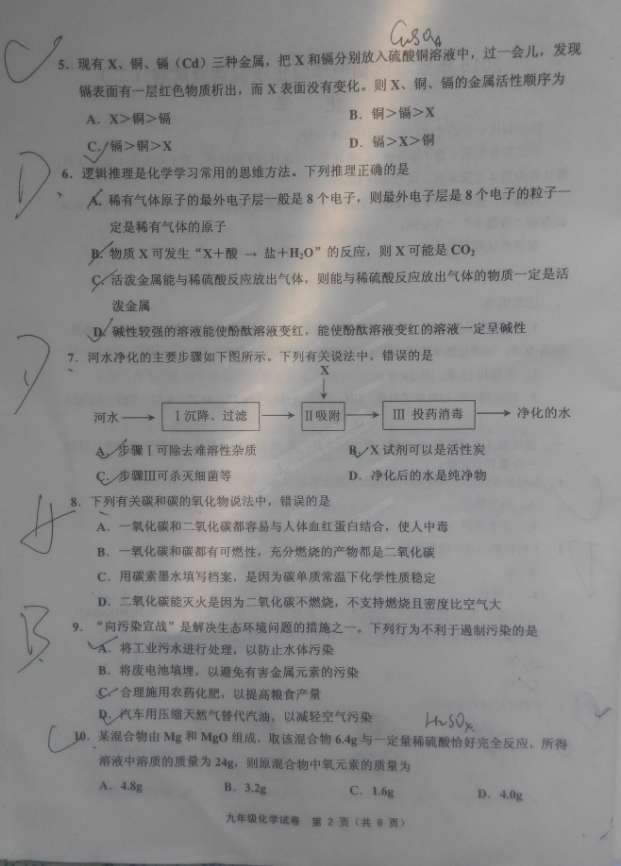 CuSO₄
C 5. 现有 X、铜、镉（Cd）三种金属，把 X 和镉分别放入硫酸铜溶液中，过一会儿，发现
镉表面有一层红色物质析出，而 X 表面没有变化。则 X、铜、镉的金属活性顺序为
A. X>铜>镉 B. 铜>镉>X
C. 镉>铜>X D. 镉>X>铜
D 6. 逻辑推理是化学学习常用的思维方法。下列推理正确的是
A. 稀有气体原子的最外电子层一般是 8 个电子，则最外电子层是 8 个电子的粒子一
定是稀有气体的原子
B. 物质 X 可发生“X+酸 → 盐+H₂O”的反应，则 X 可能是 CO₂
C. 活泼金属能与稀硫酸反应放出气体，则能与稀硫酸反应放出气体的物质一定是活
泼金属
D. 碱性较强的溶液能使酚酞溶液变红，能使酚酞溶液变红的溶液一定呈碱性
D 7. 河水净化的主要步骤如下图所示。下列有关说法中，错误的是
X
河水 → Ⅰ沉降、过滤 → Ⅱ吸附 → Ⅲ 投药消毒 → 净化的水
A. 步骤Ⅰ可除去难溶性杂质 B. X 试剂可以是活性炭
C. 步骤Ⅲ可杀灭细菌等 D. 净化后的水是纯净物
A 8. 下列有关碳和碳的氧化物说法中，错误的是
A. 一氧化碳和二氧化碳都容易与人体血红蛋白结合，使人中毒
B. 一氧化碳和碳都有可燃性，充分燃烧的产物都是二氧化碳
C. 用碳素墨水填写档案，是因为碳单质常温下化学性质稳定
D. 二氧化碳能灭火是因为二氧化碳不燃烧，不支持燃烧且密度比空气大
B 9. “向污染宣战”是解决生态环境问题的措施之一。下列行为不利于遏制污染的是
A. 将工业污水进行处理，以防止水体污染
B. 将废电池填埋，以避免有害金属元素的污染
C. 合理施用农药化肥，以提高粮食产量
D. 汽车用压缩天然气替代汽油，以减轻空气污染
H₂SO₄
C 10. 某混合物由 Mg 和 MgO 组成，取该混合物 6.4g 与一定量稀硫酸恰好完全反应，所得
溶液中溶质的质量为 24g，则原混合物中氧元素的质量为
A. 4.8g B. 3.2g C. 1.6g D. 4.0g
九年级化学试卷 第 2 页（共 8 页）